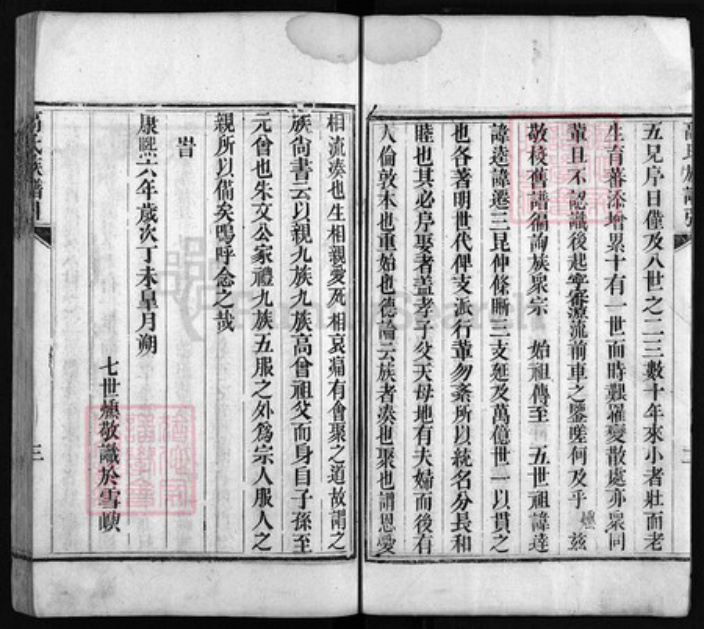 五兄序曰僅及八世之二三數十年來小者壯而老
生育蕃添增累十有一世而時艱罹變散處亦衆同
輩且不認識後起寜審源流前車之鑒嗟何及乎 燻 茲
敬梭舊譜徧詢族衆宗 始祖傳至 五世祖諱逵
諱逵諱遷三昆仲條晰三支延及萬億世一以貫之
也各著明世代俾支派行輩勿紊所以統名分長和
睦也其必序娶者蓋孝子父天母地有夫婦而後有
人倫敦本也重始也德論云族者湊也聚也謂恩愛
相流湊也生相親愛死相哀痛有會聚之道故謂之
族尙書云以親九族九族高曾祖父而身自子孫至
元曾也朱文公家禮九族五服之外爲宗人服人之
親所以備矣嗚呼念之哉
旹
康熙六年歲次丁未皐月朔
七世燻敬識於雪
高氏族譜引
三